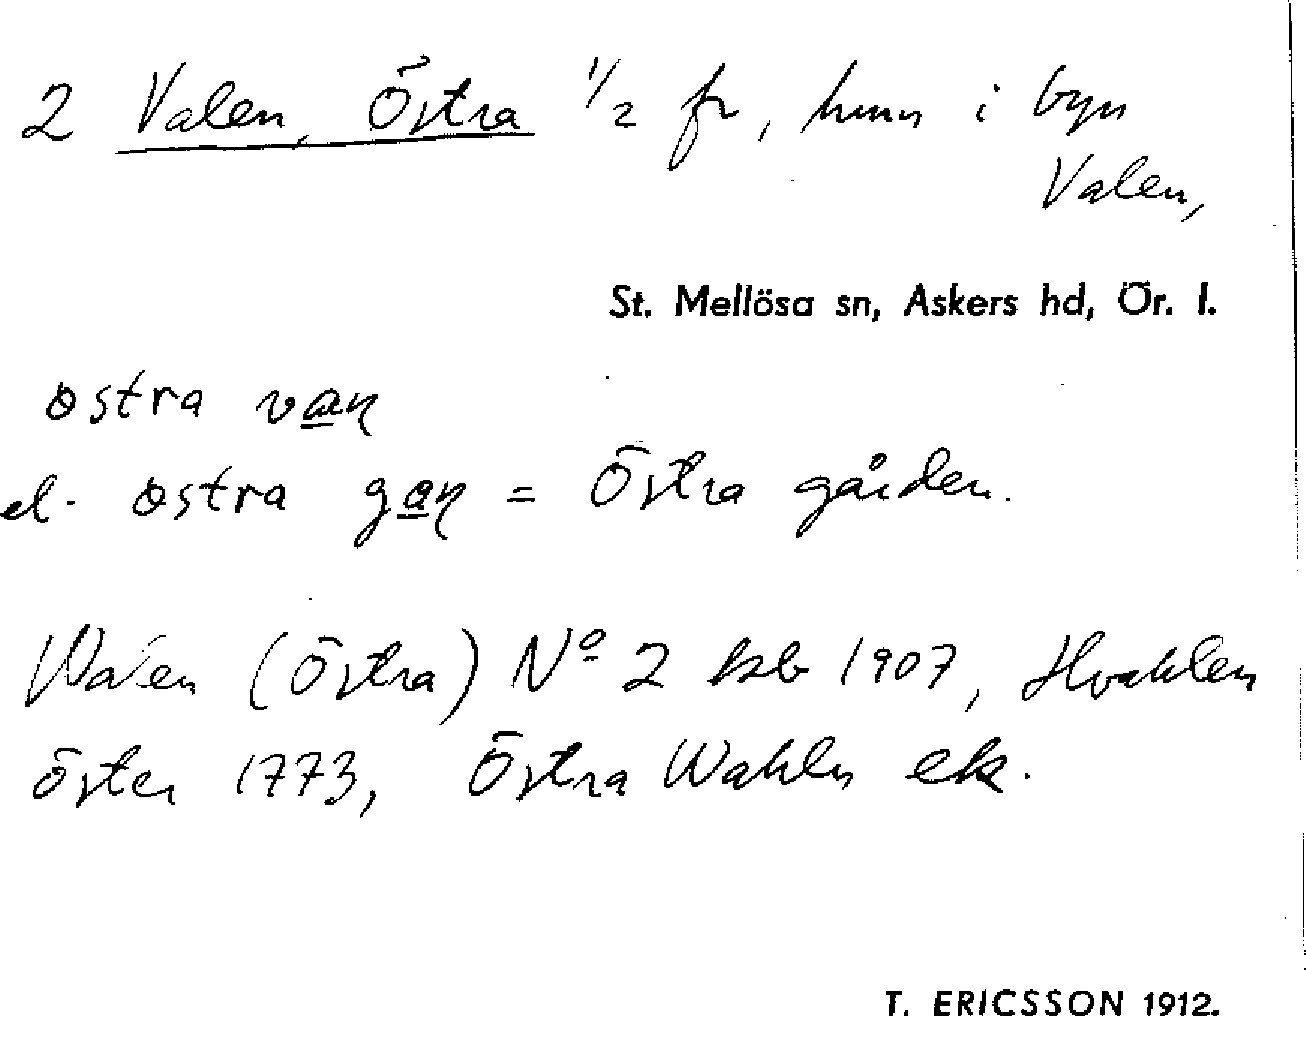 2 Valen, Östra 1/2 fr, hmn i byn
Valen,
St. Mellösa sn, Askers hd, Ör. l.
ɵstra va̲ɳ
el. ɵstra ga̲ɳ = Östra gården.
Walen (Östra) Nº 2 jb 1907, Hvahlen
öster 1773, Östra Wahln ek.
T. ERICSSON 1912.